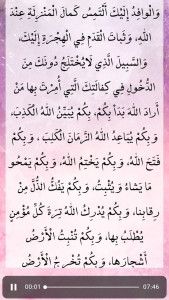 وَالْوَافِدُ إِلَيْكَ أَلْتَمِسُ كَمالَ الْمَنْزِلَةِ عِنْدَ
اللهِ، وَثَباتَ الْقَدَمِ فِي الْهِجْرَةِ إِلَيْكَ،
وَالسَّبِيلَ الَّذِي لَايَخْتَلِجُ دُونَكَ مِنَ
الدُّخُولِ فِي كِفالَتِكَ الَّتِي أُمِرْتَ بِها مَنْ
أَرادَ اللهَ بَدَأَ بِكُمْ، بِكُمْ يُبَيِّنُ اللهُ الْكَذِبَ،
وَبِكُمْ يُباعِدُ اللهُ الزَّمانَ الْكَلِبَ ، وَ بِكُمْ
فَتَحَ اللهُ، وَبِكُمْ يَخْتِمُ اللهُ، وَ بِكُمْ يَمْحُو
مَا يَشاءُ وَيُثْبِتُ، وَ بِكُمْ يَفُكُّ الذُّلَّ مِنْ
رِقابِنا، وَ بِكُمْ يُدْرِكُ اللهُ تِرَةَ كُلِّ مُؤْمِنٍ
يُطْلَبُ بِها، وَ بِكُمْ تُنْبِتُ الْأَرْضُ
أَشْجارَها، وَ بِكُمْ تُخْرِجُ الْأَرْضُ
00:01 07:46